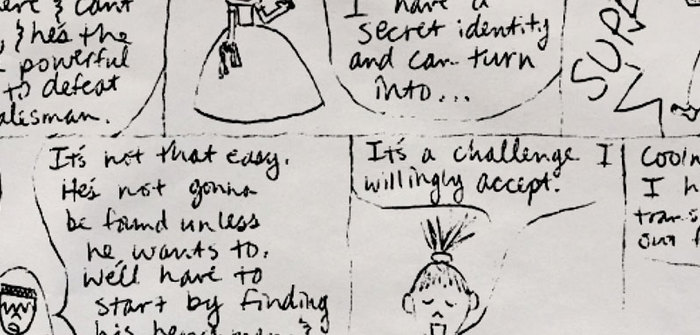 & can't
, & he's the
powerful
to defeat
alisman.
I have a
secret identity
and can turn
into...
SUP
It's not that easy.
He's not gonna
be found unless
he wants to.
we'll have to
start by finding
his
&
It's a challenge I
willingly accept.
I h
our